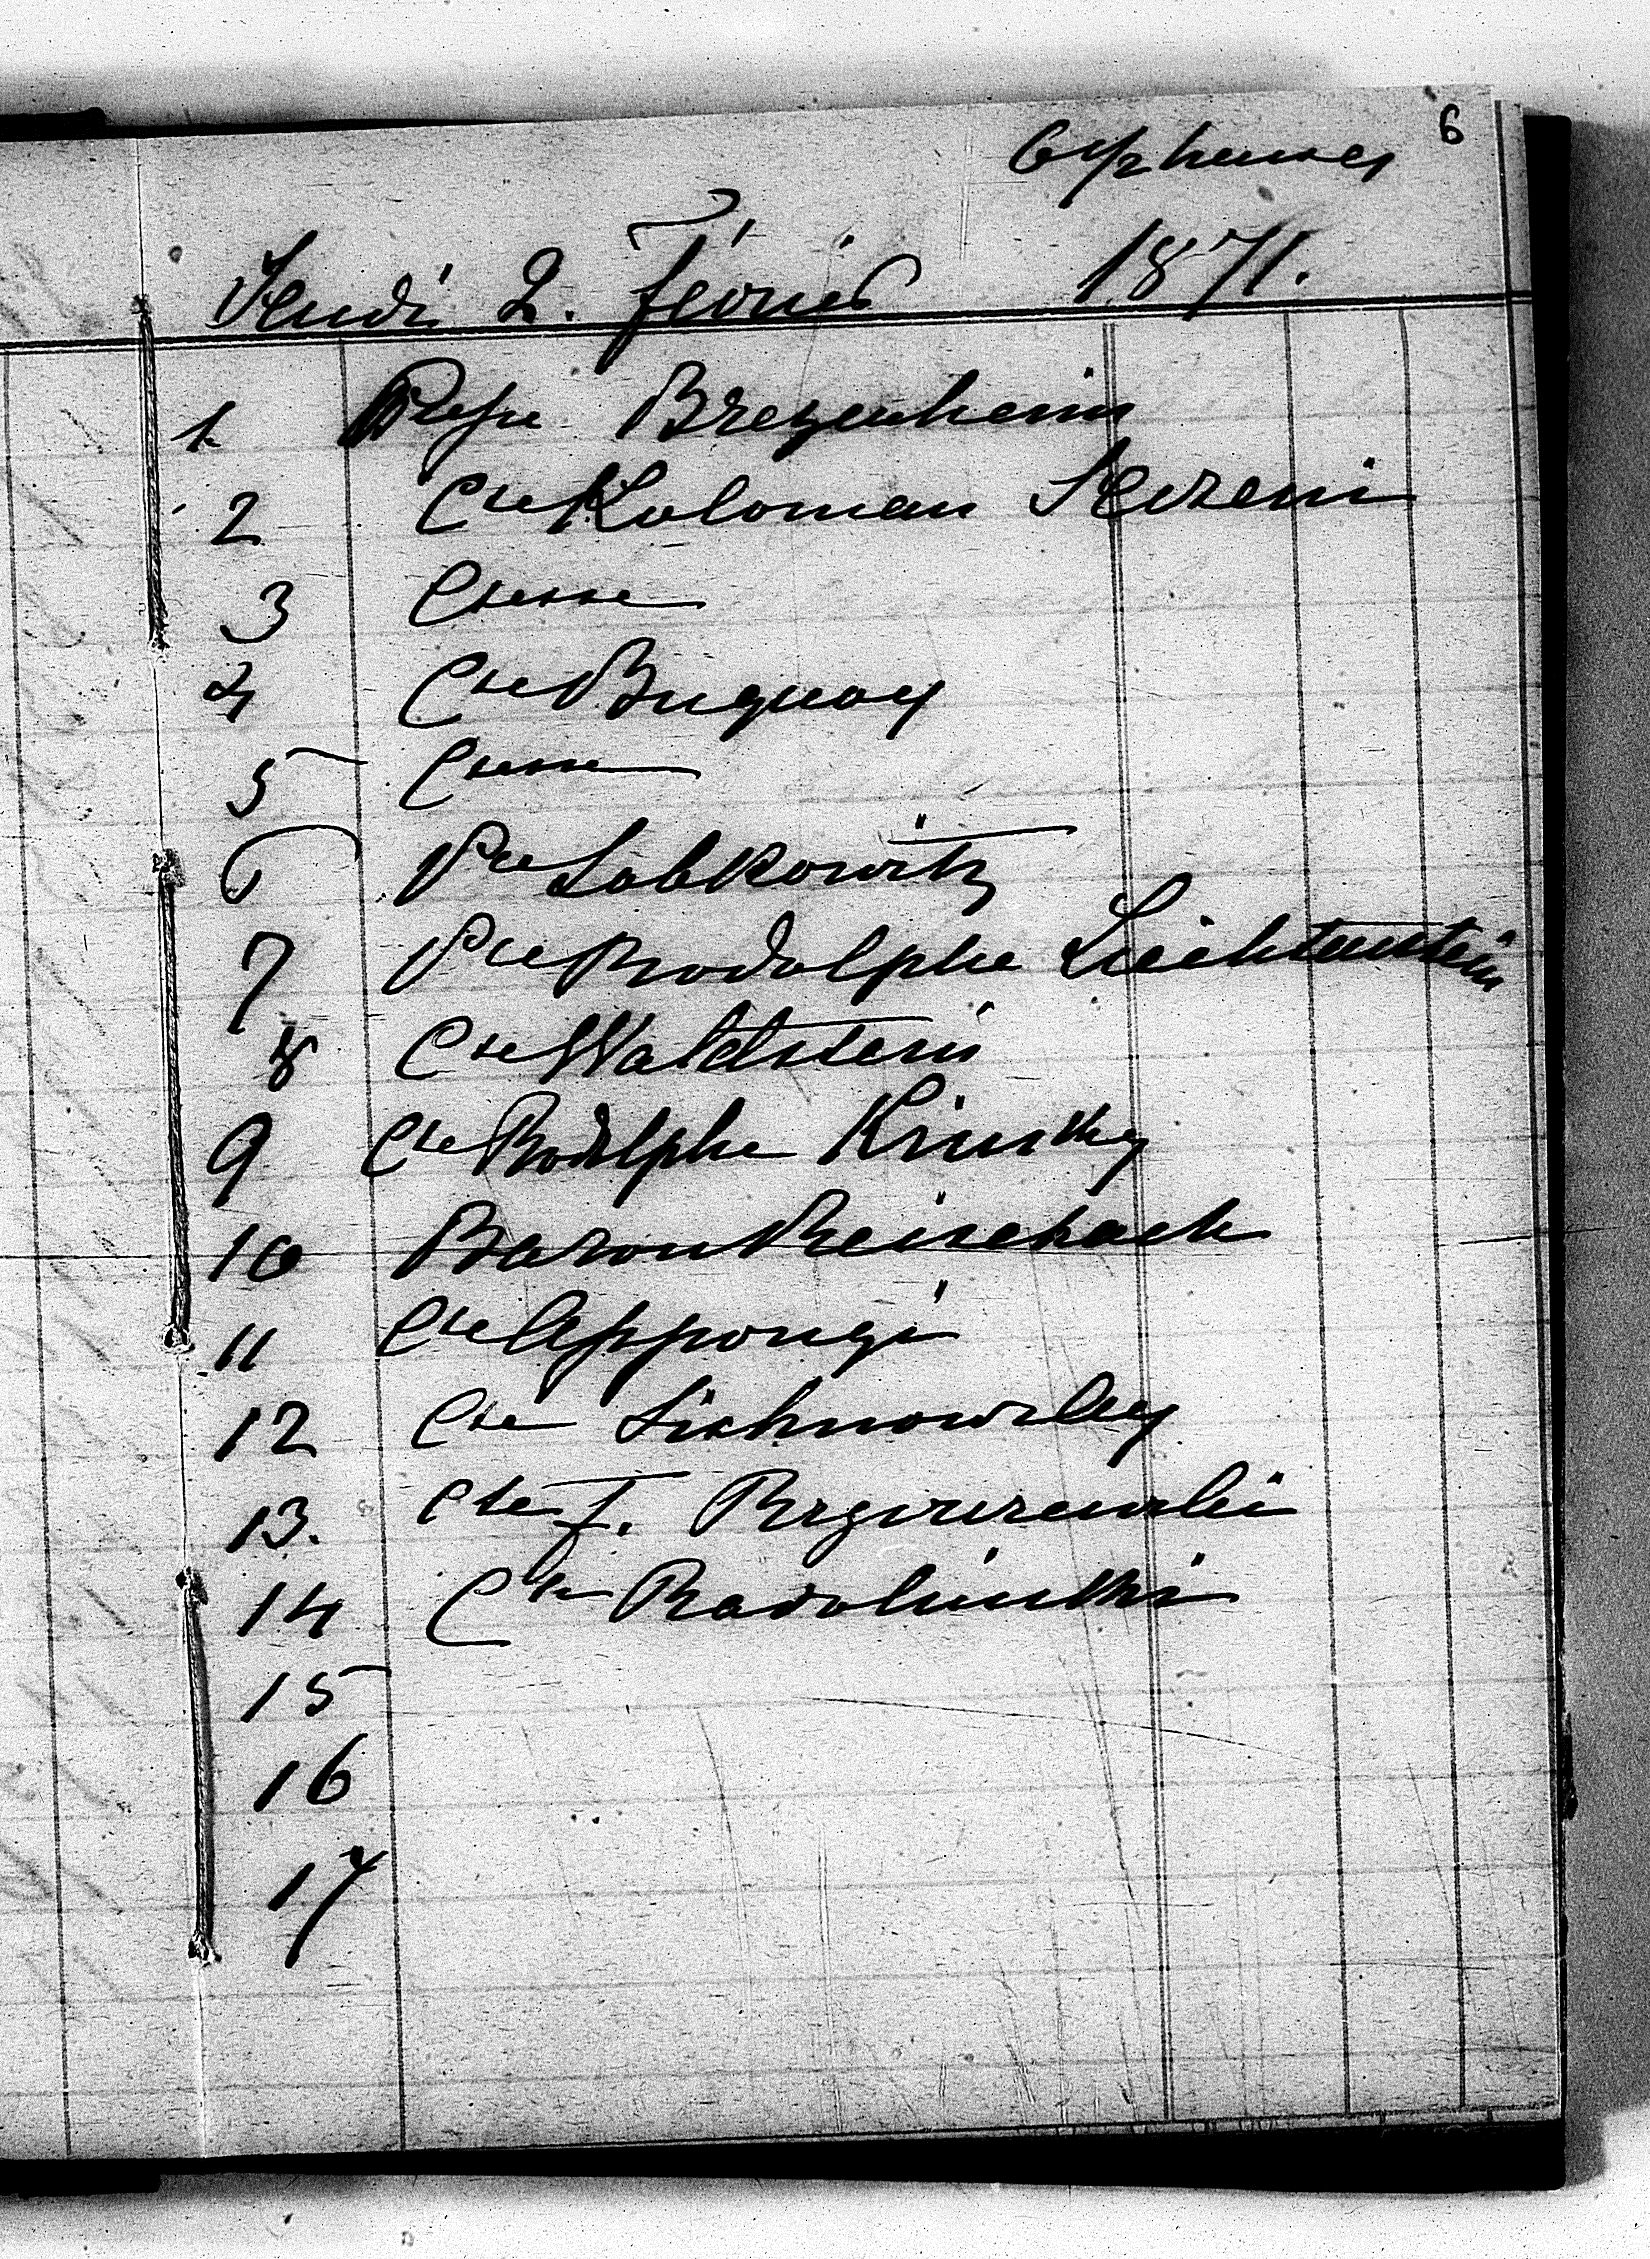 6
Jeudi 2. Février 1871.
1. Bresenheim
2 Cte Koloman
3 Ctesse
4 Cte Buquoy
5 Ctesse
6 Pce Lobkowitz
7 Pce Rodolphe Liechtenstein
8 Cte Waldstein
9 Cte Rodolphe Kinsky
10 Baron Reischach
11 Cte Appongi
12 Cte Lichnowsky
13. Cte J.
14 Cte Radolinski
15
16
17